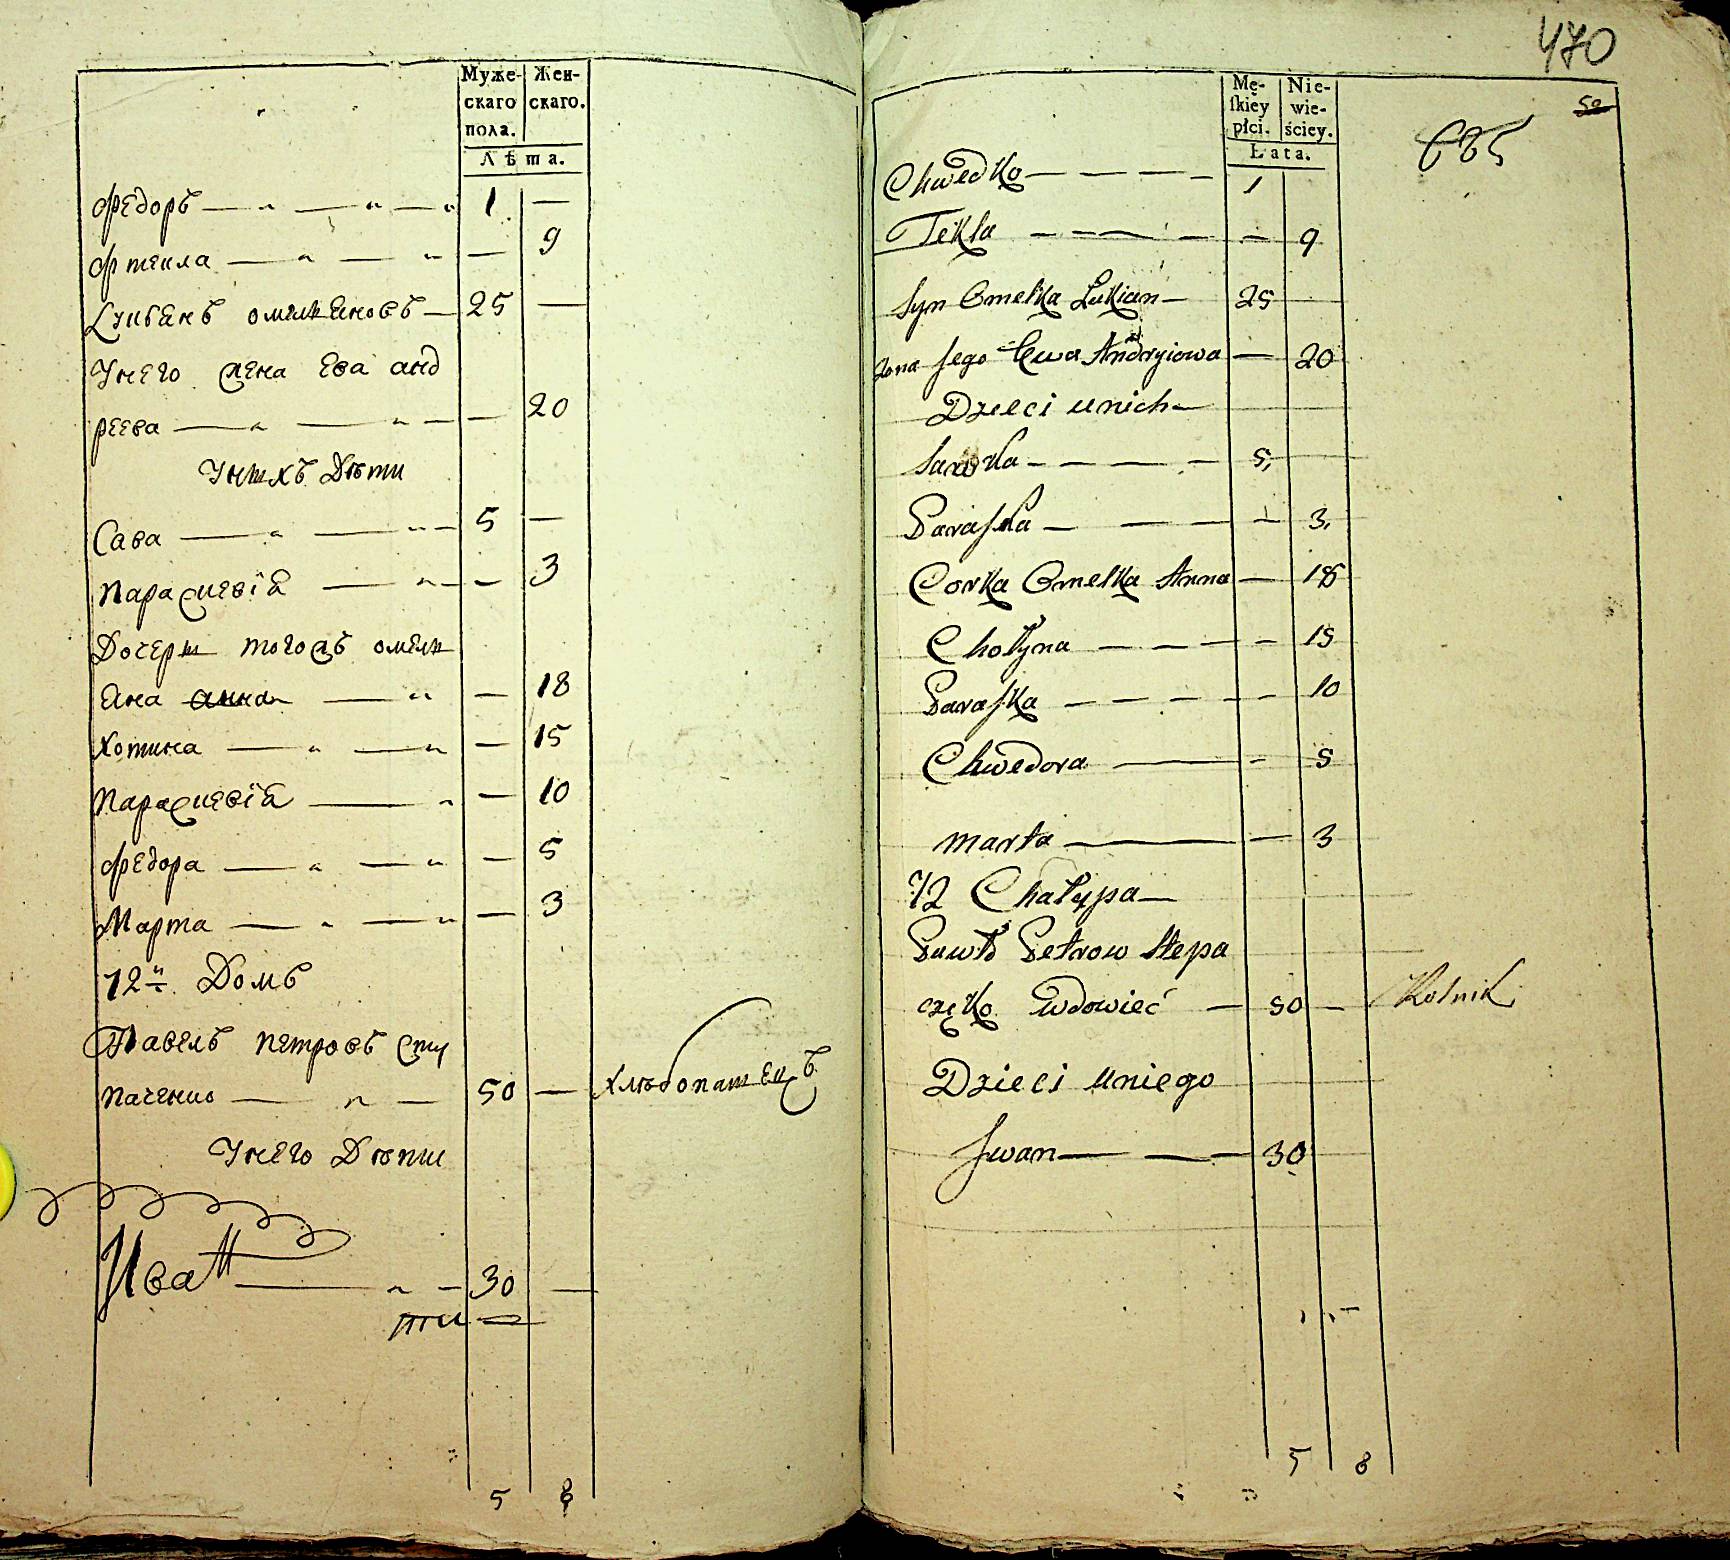 Муже- Жен-
скаго скаго.
пола.
Лѣта.
Федоръ — „ — „ — „ 1 —
Фтекла — „ — „ — 9
Лукѣянъ омелѣяновъ — 25 —
Унего жена Ева анд
реева — „ — „ — — 20
Унихъ Дѣти
Сава — „ — „ — 5 —
Параскевіѧ — „ — — 3
Дочери тогожъ омелѣ
яна анна — „ — 18
Хотина — „ — „ — 15
Параскевіѧ — „ — 10
Федора — „ — „ — 5
Марта — „ — „ — 3
12й Домъ
Павелъ петровъ сте
паченко — „ — 50 — Хлѣбопашецъ
Унего Дѣти
Иванъ — „ — 30 —
5 8
470
Mę- Nie-
ſkiey wie-
płci. ściey.
Łata.
50
Chwedko — — — — 1
Tekla — — — — — 9
Syn Omelka Lukian — 25
Zona Jego Ewa Andryiowa — 20
Dzieci unich —
Sawka — — — — 5,
Paraſka — — — — 3,
Corka Omelka Anna — 18
Chotyna — — — — 15
Paraſka — — — — — 10
Chwedora — — 5
Marta — — 3
12 Chałupa —
Pawło Petrow Stepa
częko Wdowieć — 50 — Rolnik
Dzieci uniego
Jwan — — — 30
5 8